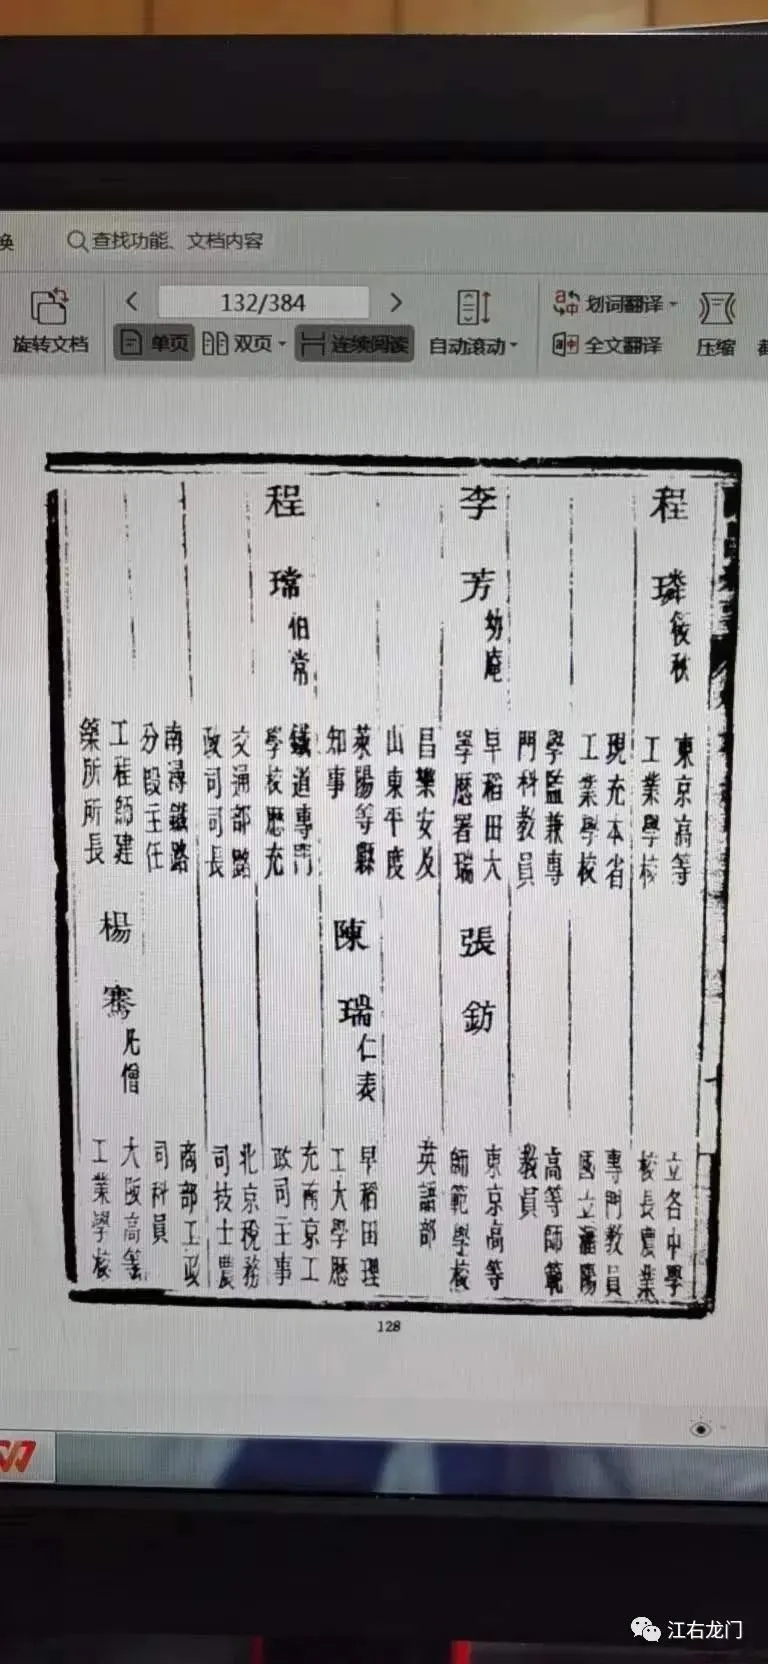 换
查找功能、文档内容
132/384
旋转文档
单页
双页
连续阅读
自动滚动
划词翻译
全文翻译
压缩
程璘 筱秋
東京高等
工業學校
現充本省
工業學校
學監兼專
門科教員
李芳 幼庵
早稻田大
學歷署瑞
昌樂安及
山東平度
萊陽等縣
知事
程瑺 伯常
鐵道專門
學校歷充
交通部路
政司司長
南潯鐵路
分段主任
工程師建
築所所長
立各中學
校長農業
專門教員
國立瀋陽
高等師範
教員
張鈁
東京高等
師範學校
英語部
陳瑞 仁表
早稻田理
工大學歷
充南京工
政司主事
北京稅務
司技士農
商部工政
司科員
楊騫 凡僧
大阪高等
工業學校
128
江右龙门